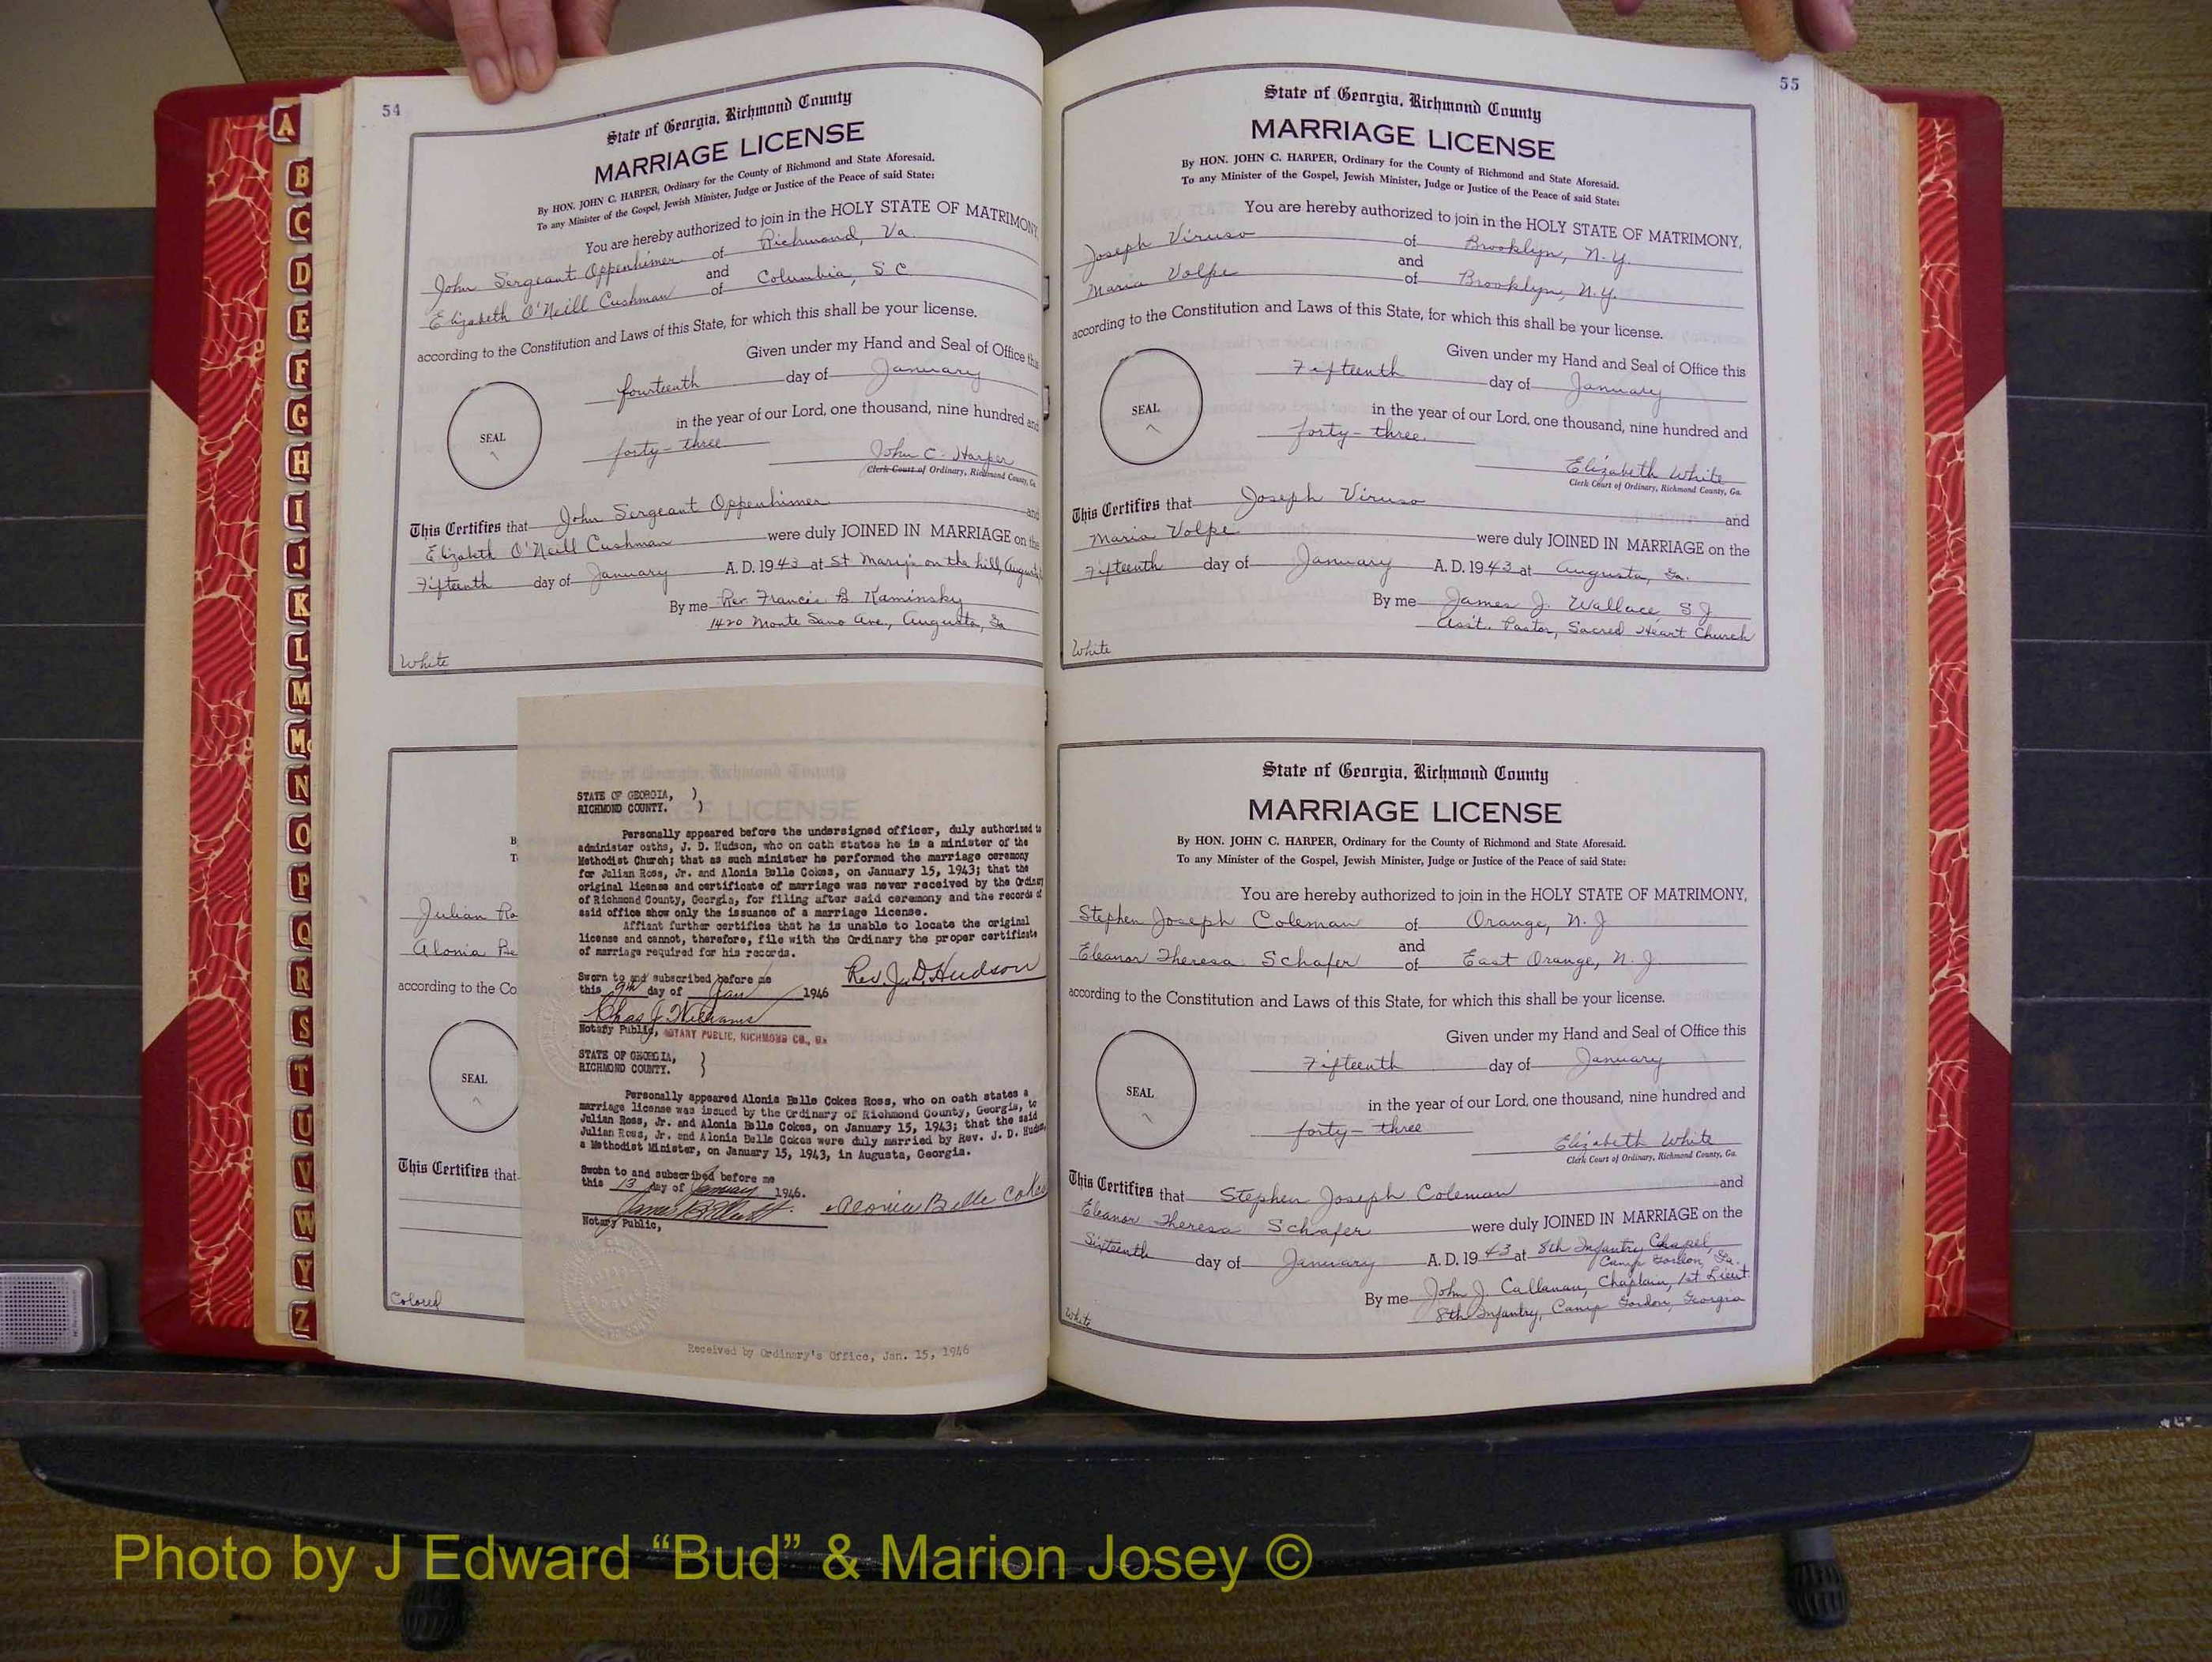 54
State of Georgia, Richmond County
MARRIAGE LICENSE
By HON. JOHN C. HARPER, Ordinary for the County of Richmond and State Aforesaid.
To any Minister of the Gospel, Jewish Minister, Judge or Justice of the Peace of said State:
You are hereby authorized to join in the HOLY STATE OF MATRIMONY,
John Sergeant Oppenhimer of Richmond, Va.
and
Elizabeth O'Neill Cushman of Columbia, S C.
according to the Constitution and Laws of this State, for which this shall be your license.
Given under my Hand and Seal of Office this
fourteenth day of January
in the year of our Lord, one thousand, nine hundred and
SEAL
forty-three
John C. Harper
Clerk Court of Ordinary, Richmond County, Ga.
This Certifies that John Sergeant Oppenhimer and
Elizabeth O'Neill Cushman were duly JOINED IN MARRIAGE on the
Fifteenth day of January A. D. 1943 at St Mary's on the hill, Augusta
By me Rev. Francis B. Kaminsky
1420 Monte Sano Ave., Augusta, Ga
White
B
T
Julian Ro
Alonia Be
according to the Co
SEAL
This Certifies that
Colored
STATE OF GEORGIA, )
RICHMOND COUNTY. )
Personally appeared before the undersigned officer, duly authorized to
administer oaths, J. D. Hudson, who on oath states he is a minister of the
Methodist Church; that as such minister he performed the marriage ceremony
for Julian Ross, Jr. and Alonia Belle Cokes, on January 15, 1943; that the
original license and certificate of marriage was never received by the Ordinary
of Richmond County, Georgia, for filing after said ceremony and the records of
said office show only the issuance of a marriage license.
Affiant further certifies that he is unable to locate the original
license and cannot, therefore, file with the Ordinary the proper certificate
of marriage required for his records.
Sworn to and subscribed before me
this 9th day of Jan 1946
Rev. J. D. Hudson
Chas J. Williams
Notary Public, NOTARY PUBLIC, RICHMOND CO., GA
STATE OF GEORGIA, )
RICHMOND COUNTY. )
Personally appeared Alonia Belle Cokes Ross, who on oath states a
marriage license was issued by the Ordinary of Richmond County, Georgia, to
Julian Ross, Jr. and Alonia Belle Cokes, on January 15, 1943; that the said
Julian Ross, Jr. and Alonia Belle Cokes were duly married by Rev. J. D. Hudson,
a Methodist Minister, on January 15, 1943, in Augusta, Georgia.
Sworn to and subscribed before me
this 13 day of January 1946.
Alonia Belle Cokes
Notary Public,
Received by Ordinary's Office, Jan. 15, 1946
55
State of Georgia, Richmond County
MARRIAGE LICENSE
By HON. JOHN C. HARPER, Ordinary for the County of Richmond and State Aforesaid.
To any Minister of the Gospel, Jewish Minister, Judge or Justice of the Peace of said State:
You are hereby authorized to join in the HOLY STATE OF MATRIMONY,
Joseph Viruso of Brooklyn, N.Y.
and
Maria Volpe of Brooklyn, N.Y.
according to the Constitution and Laws of this State, for which this shall be your license.
Given under my Hand and Seal of Office this
Fifteenth day of January
SEAL
in the year of our Lord, one thousand, nine hundred and
forty-three.
Elizabeth White
Clerk Court of Ordinary, Richmond County, Ga.
This Certifies that Joseph Viruso and
Maria Volpe were duly JOINED IN MARRIAGE on the
Fifteenth day of January A. D. 1943 at Augusta, Ga.
By me James J. Wallace S J
Asst. Pastor, Sacred Heart Church
White
State of Georgia, Richmond County
MARRIAGE LICENSE
By HON. JOHN C. HARPER, Ordinary for the County of Richmond and State Aforesaid.
To any Minister of the Gospel, Jewish Minister, Judge or Justice of the Peace of said State:
You are hereby authorized to join in the HOLY STATE OF MATRIMONY,
Stephen Joseph Coleman of Orange, N. J
and
Eleanor Theresa Schafer of East Orange, N. J
according to the Constitution and Laws of this State, for which this shall be your license.
Given under my Hand and Seal of Office this
Fifteenth day of January
SEAL
in the year of our Lord, one thousand, nine hundred and
forty-three
Elizabeth White
Clerk Court of Ordinary, Richmond County, Ga.
This Certifies that Stephen Joseph Coleman and
Eleanor Theresa Schafer were duly JOINED IN MARRIAGE on the
Sixteenth day of January A. D. 1943 at 8th Infantry Chapel,
Camp Gordon, Ga.
By me John J. Callanan, Chaplain, 1st Lieut.
8th Infantry, Camp Gordon, Georgia
White
A
B
C
D
E
F
G
H
I
J
K
L
M
Mc
N
O
P
Q
R
S
T
U
V
W
Y
Z
Photo by J Edward “Bud” & Marion Josey ©